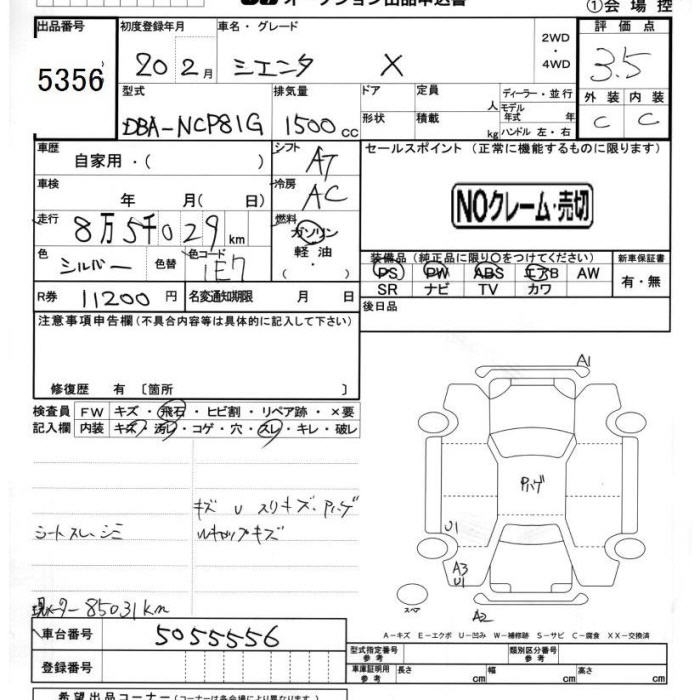 オークション出品申込書
①会場控
出品番号 初度登録年月 車名・グレード 2WD・4WD 評価点
5356 20 2月 シエンタ X 3.5
型式 排気量 ドア 定員 人 ディーラー・並行 外装 内装
DBA-NCP81G 1500cc 形状 積載 kg モデル年式 年 ハンドル 左・右 C C
車歴 自家用・( ) シフト AT セールスポイント (正常に機能するものに限ります)
車検 年 月( 日) 冷房 AC
NOクレーム・売切
走行 8万5千029km 燃料 ガソリン
軽油
( ・ )
色 シルバー 色替 色コード 1E7 装備品 (純正品に限り○をつけてください) 新車保証書
PS PW ABS エアB AW 有・無
SR ナビ TV カワ
R券 11200円 名変通知期限 月 日 後日品
注意事項申告欄 (不具合内容等は具体的に記入して下さい)
修復歴 有 〔箇所 〕
検査員 FW キズ・飛石・ヒビ割・リペア跡・×要
記入欄 内装 キズ・汚レ・コゲ・穴・スレ・キレ・破レ
キズ U スリキズ・Pハゲ
シートスレ・シミ
Wキャップキズ
現メーター85031km
A1
Pハゲ
U1
A3
U1
スペア
A2
A-キズ E-エクボ U-凹み W-補修跡 S-サビ C-腐食 XX-交換済
車台番号 5055556
型式指定番号 参考 類別区分番号 参考
登録番号 車庫証明用 参考 長さ cm 幅 cm 高さ cm
希望出品コーナー (コーナーは各会場により異なります。)